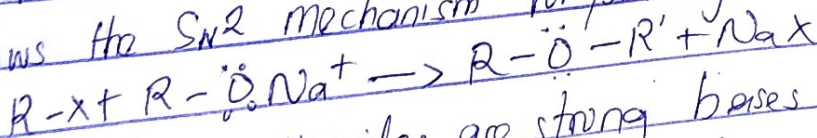 ws the SN2 mechanism
R-X+ R-Ö:Na+ → R-Ö-R'+NaX
are strong bases